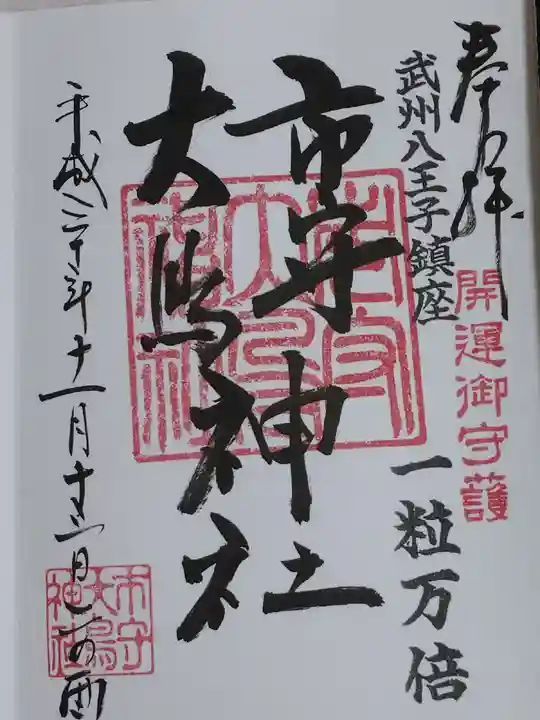 奉拝
武州八王子鎮座
開運御守護
一粒万倍
市守神社
大鳥神社
平成二十年十一月十
日
酉
市守
大鳥
神社